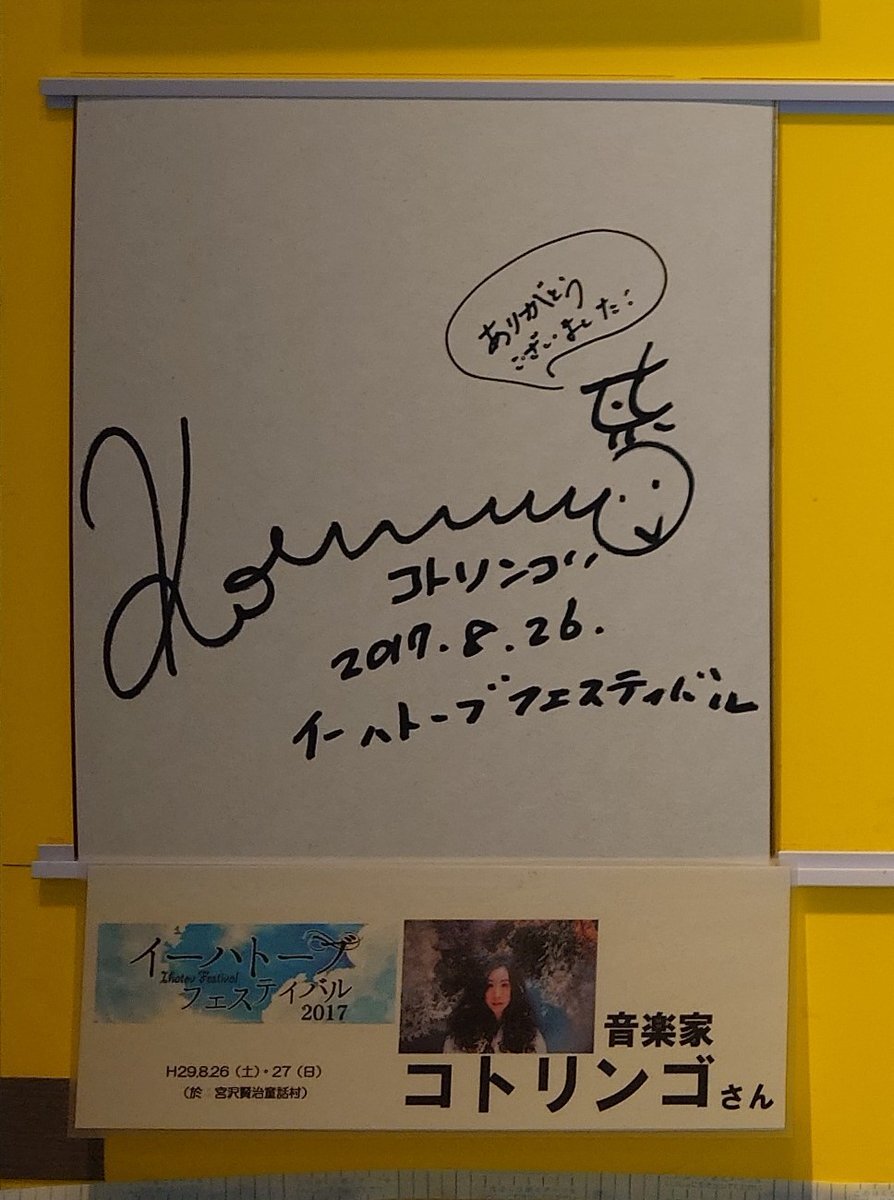 ありがとう
ございました!
コトリンゴ
2017.8.26.
イーハトーブフェスティバル
イーハトーブ
Ihatov Festival
フェスティバル
2017
H29.8.26（土）・27（日）
（於　宮沢賢治童話村）
音楽家
コトリンゴさん